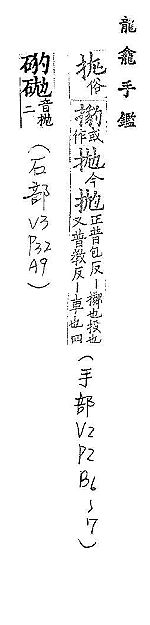 龍龕手鑑
抛俗𢳆或作拋今抛正普包反—擲也投也又普敎反—車也四(手部V2P2B6~7)
礟𥐻音抛二(石部V3P32A9)